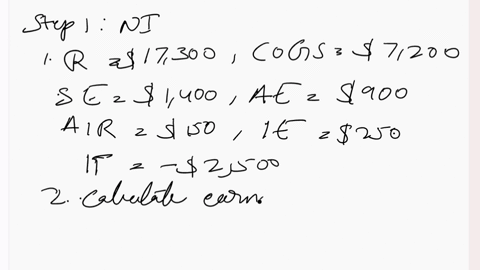 Step 1: NI
1. R = $17,300, COGS = $7,200
SE = $1,400, AE = $900
AIR = $150, IE = $250
IT = -$2,500
2. Calculate earn